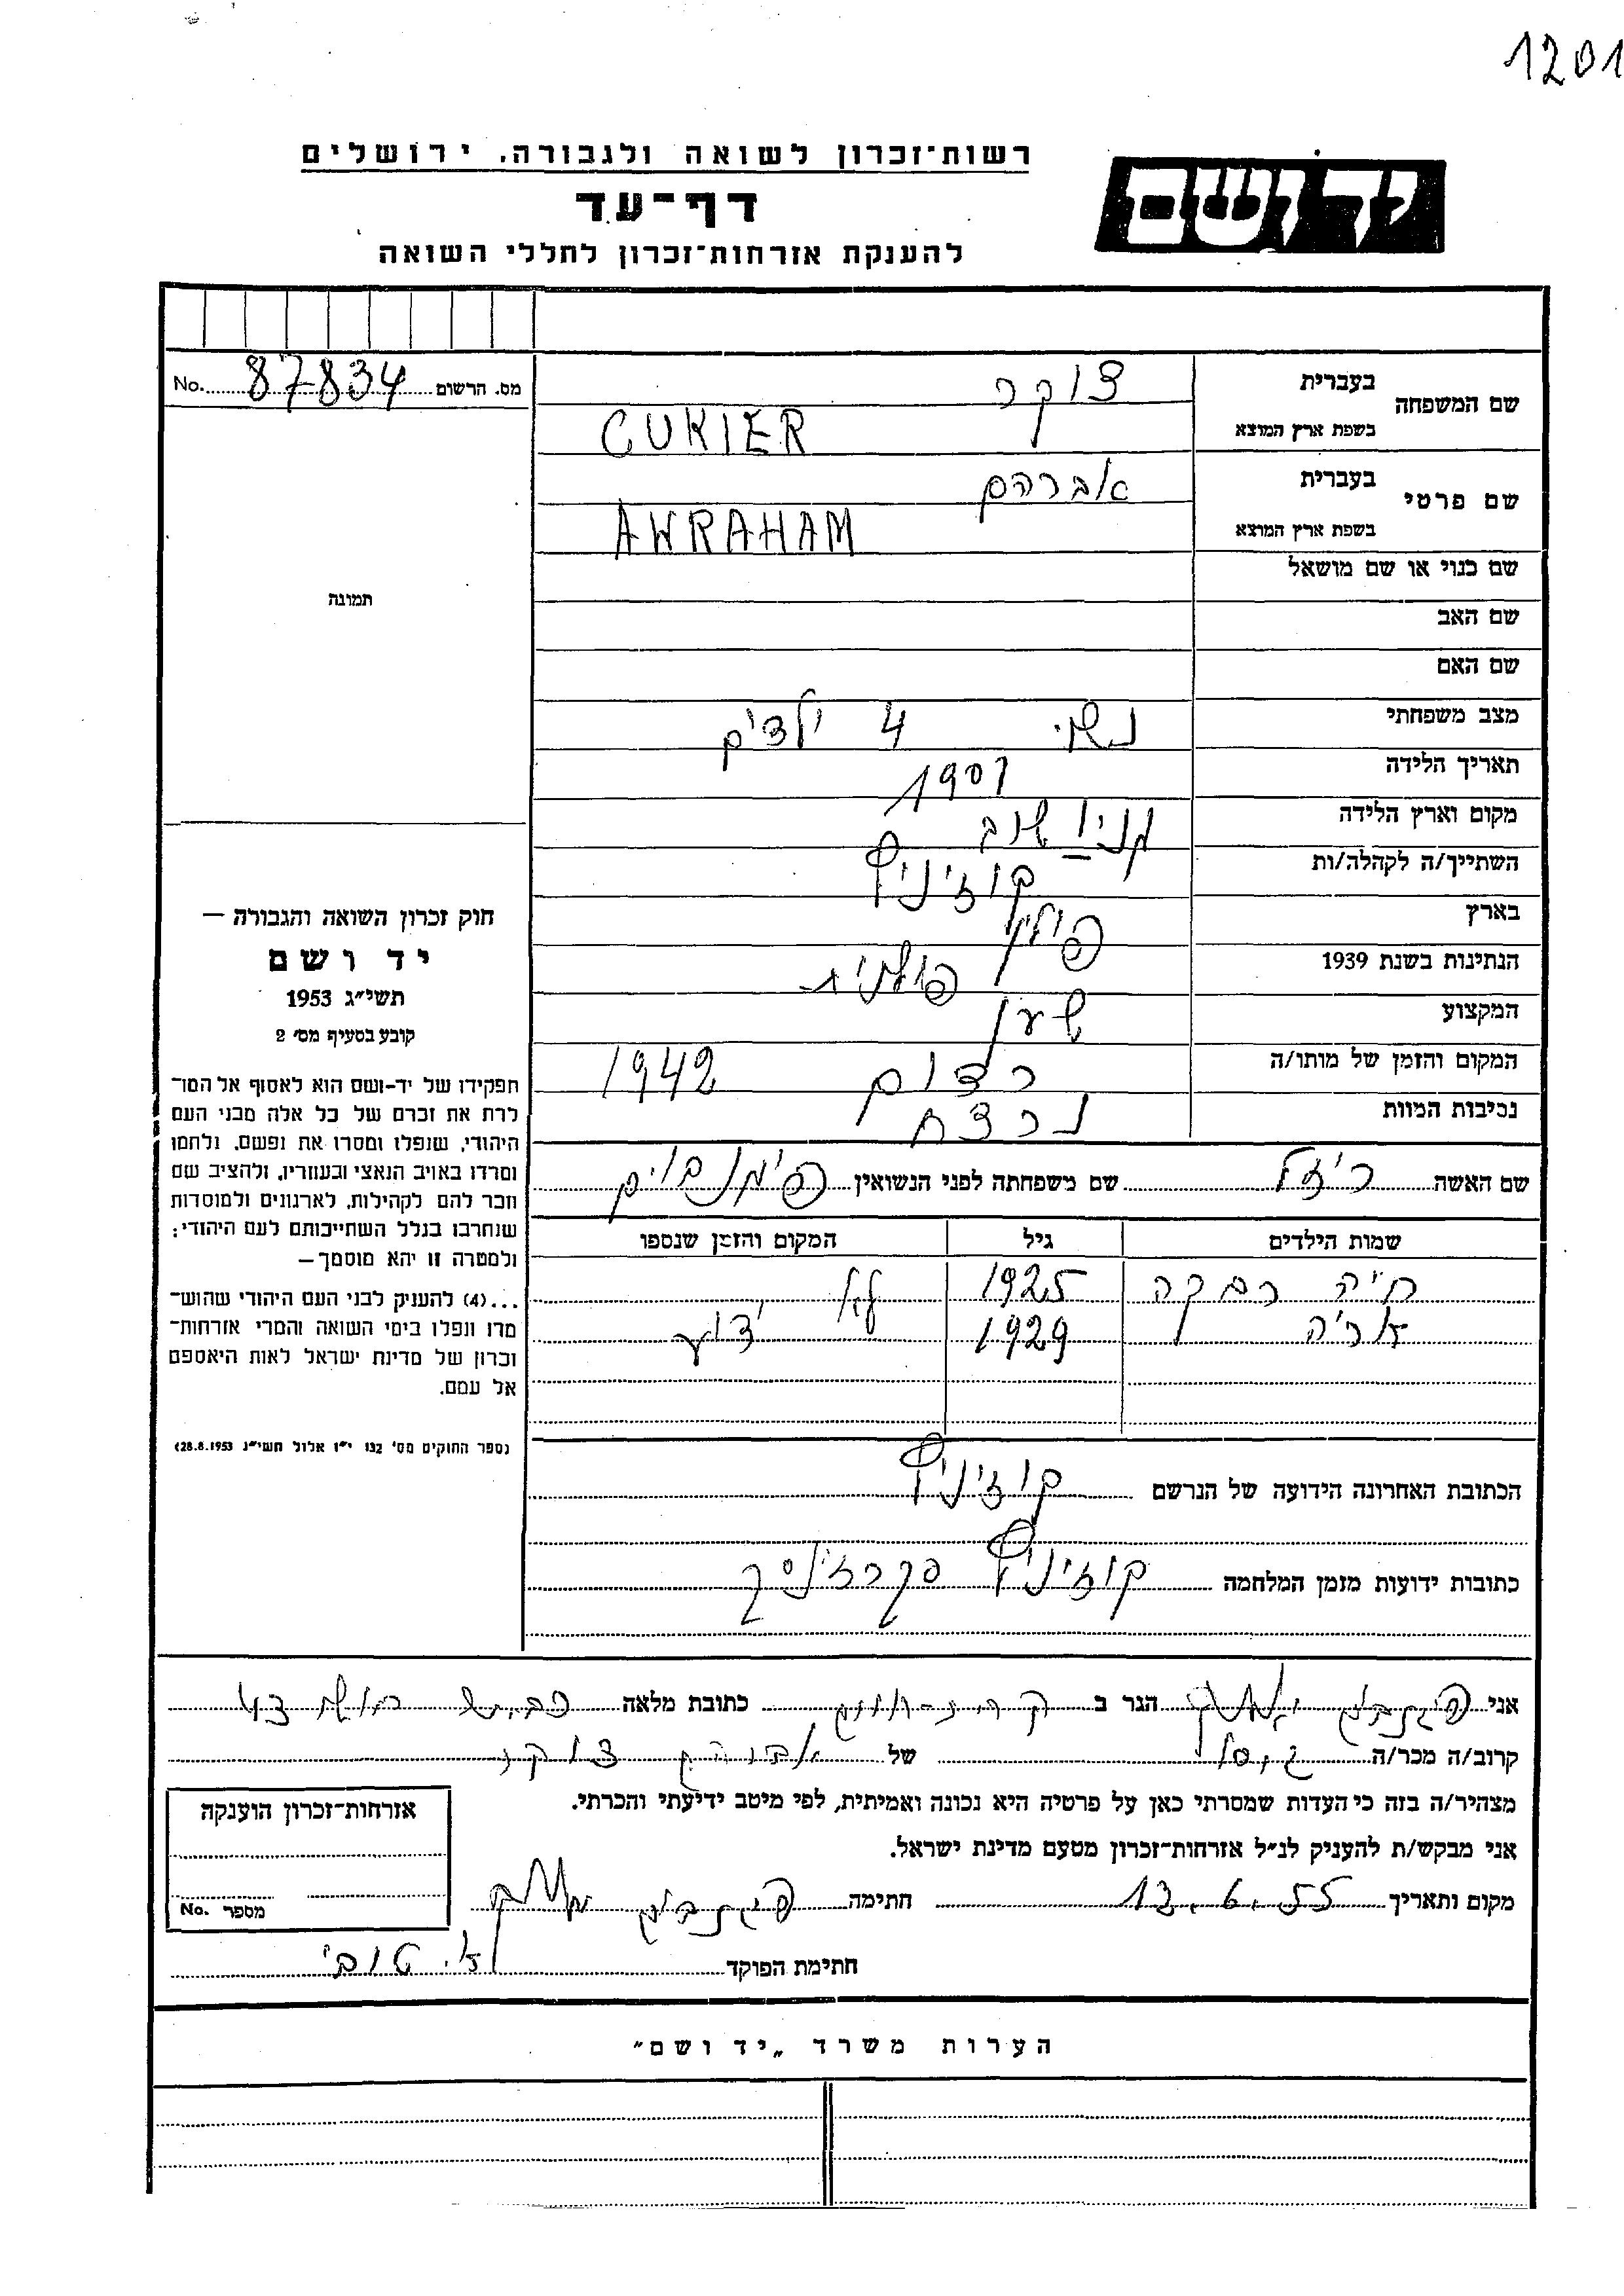 1201
רשות־זכרון לשואה ולגבורה, ירושלים
יד ושם
דף־עד
להענקת אזרחות־זכרון לחללי השואה
מס. הרשום 87834 No.
תמונה
חוק זכרון השואה והגבורה —
יד ושם
תשי״ג 1953
קובע בסעיף מס׳ 2
תפקידו של יד-ושם הוא לאסוף אל המו־
לדת את זכרם של כל אלה מבני העם
היהודי, שנפלו ומסרו את נפשם, נלחמו
ומרדו באויב הנאצי ובעוזריו, ולהציב שם
וזכר להם לקהילות, לארגונים ולמוסדות
שנחרבו בגלל השתייכותם לעם היהודי;
ולמטרה זו יהא מוסמך—
...(4) להעניק לבני העם היהודי שהוש־
מדו ונפלו בימי השואה והמרי אזרחות־
זכרון של מדינת ישראל לאות היאספם
אל עמם.
(ספר החוקים מס׳ 132 י״ז אלול תשי״ג 28.8.1953)
שם המשפחה בעברית צוקר
בשפת ארץ המוצא CUKIER
שם פרטי בעברית אברהם
בשפת ארץ המוצא AWRAHAM
שם כנוי או שם מושאל
שם האב
שם האם
מצב משפחתי נשוי 4 ילדים
תאריך הלידה 1901
מקום וארץ הלידה מניושוב
השתייך/ה לקהלה/ות קוז׳ניץ
בארץ פולין
הנתינות בשנת 1939 פולנית
המקצוע שען
המקום והזמן של מותו/ה רדום 1942
נסיבות המוות נרצח
שם האשה ריזל שם משפחתה לפני הנשואין
שמות הילדים גיל המקום והזמן שנספו
חיה רבקה 1925 לא
אריה 1929 ידוע
הכתובת האחרונה הידועה של הנרשם קוז׳ניץ
כתובות ידועות מזמן המלחמה קוז׳ניץ
אני הגר ב כתובת מלאה
קרוב/ה מכר/ה גיסו של אברהם צוקר
מצהיר/ה בזה כי העדות שמסרתי כאן על פרטיה היא נכונה ואמיתית, לפי מיטב ידיעתי והכרתי.
אני מבקש/ת להעניק לנ״ל אזרחות־זכרון מטעם מדינת ישראל.
מקום ותאריך 13.6.55 חתימה
אזרחות־זכרון הוענקה
מספר No.
חתימת הפוקד א. טובי
הערות משרד „יד ושם״